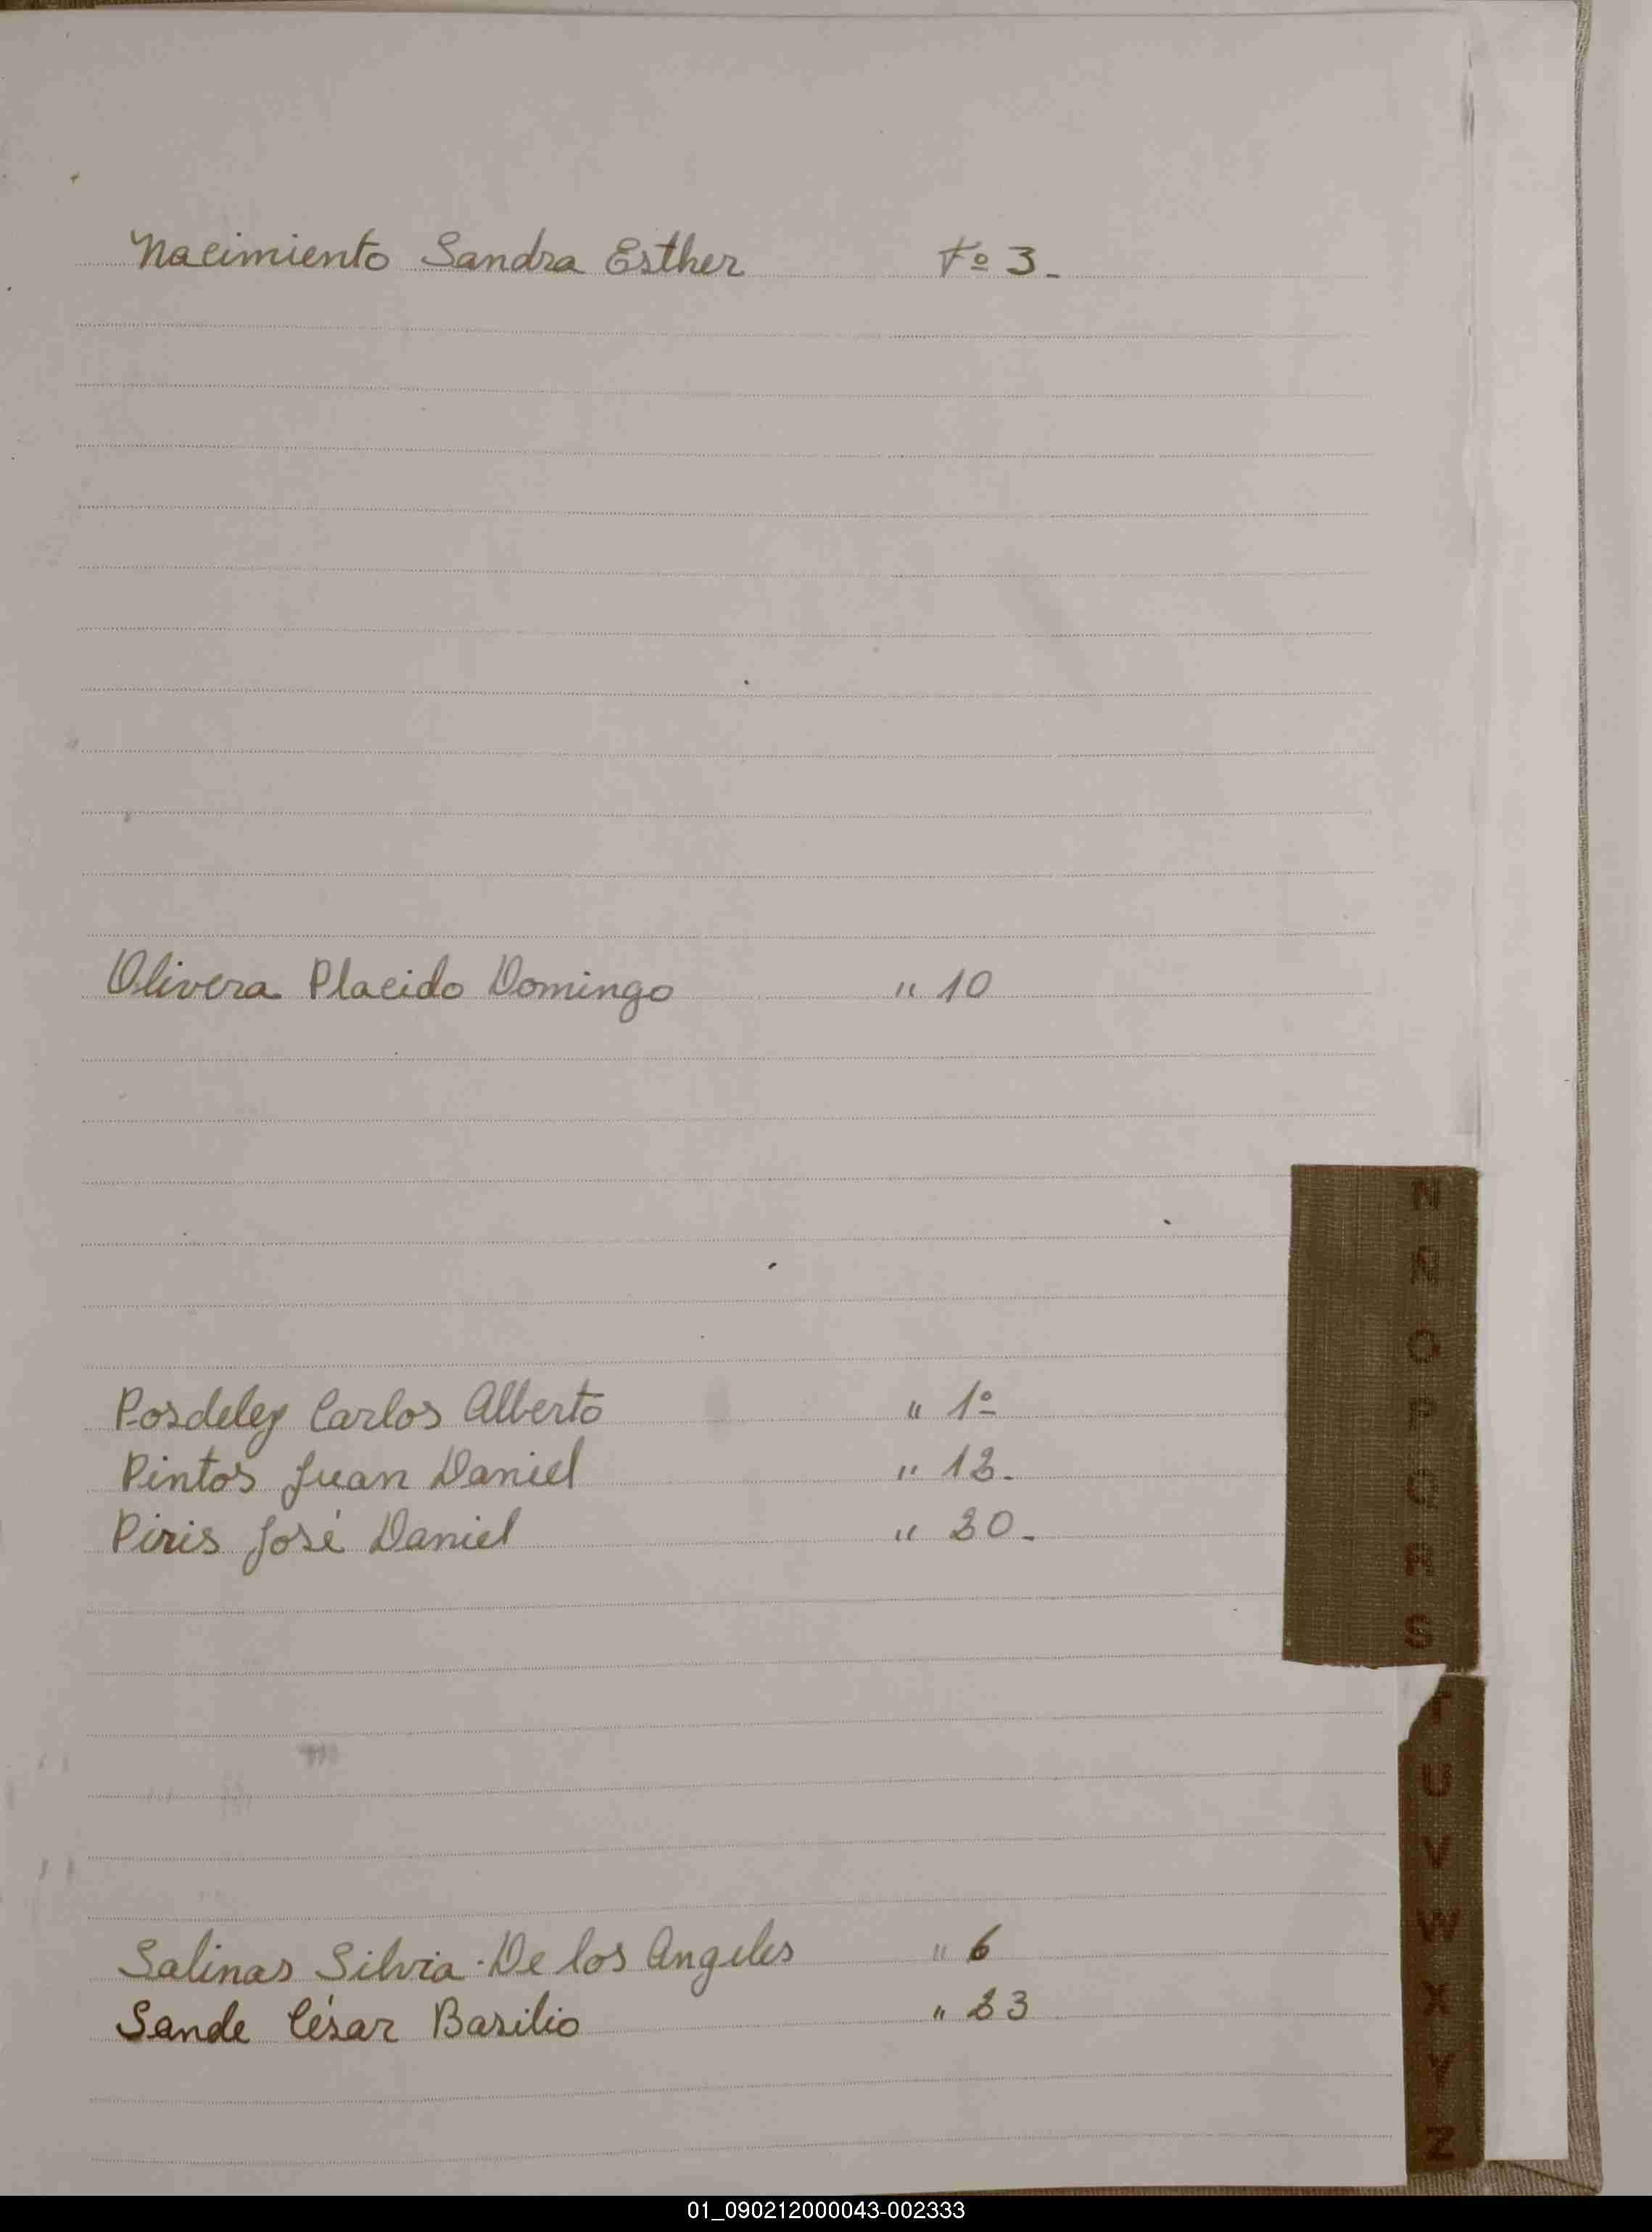 Nacimiento Sandra Esther Fº 3.
Olivera Placido Domingo " 10
Posdeley Carlos Alberto " 1º
Pintos Juan Daniel " 12.
Piris José Daniel " 20.
Salinas Silvia De los Angeles " 6
Sande César Basilio " 23
N
Ñ
O
P
Q
R
S
T
U
V
W
X
Y
Z
01_090212000043-002333